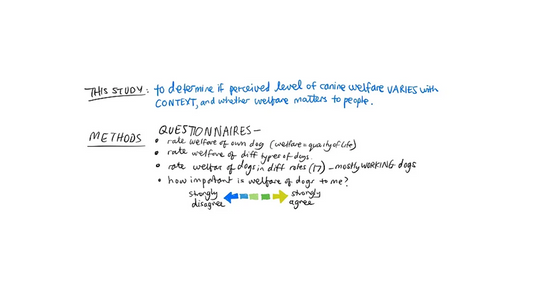 THIS STUDY: to determine if perceived level of canine welfare VARIES with
CONTEXT, and whether welfare matters to people.
METHODS QUESTIONNAIRES —
• rate welfare of own dog (welfare = quality of life)
• rate welfare of diff types of dogs.
• rate welfare of dogs in diff roles (17) - mostly WORKING dogs
• how important is welfare of dogs to me?
strongly disagree
strongly agree